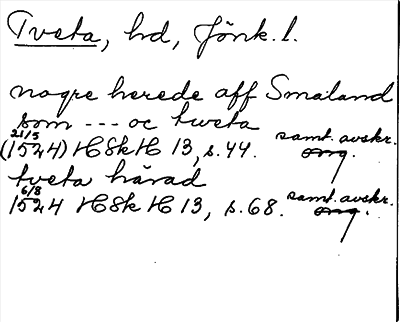 Tveta, hd, Jönk. l.
nogre herede aff Smaland
som --- oc tweta
21/5 samt. avskr.
(1524) HSkH 13, s. 44. orig.
tveta härad
6/8 samt. avskr.
1524 HSkH 13, s. 68. orig.